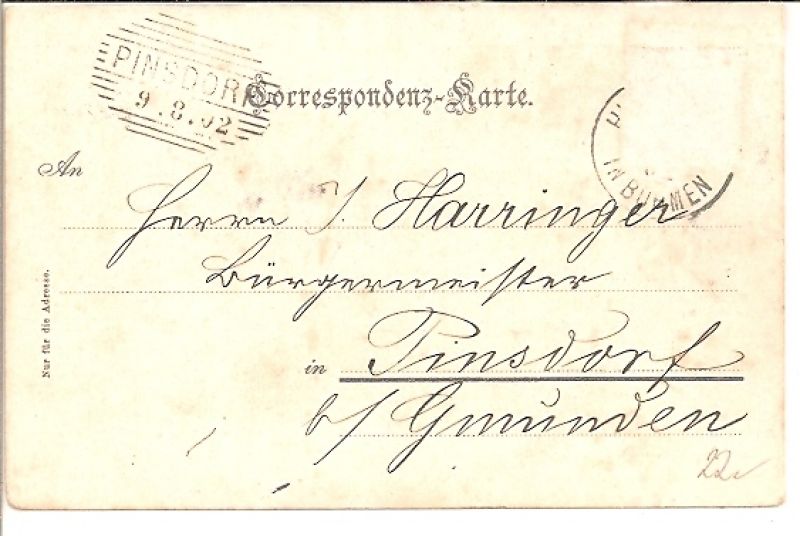 PINSDORF
9.8.02
Correspondenz-Karte.
IN BÖHMEN
An
Herrn J. Harringer
Bürgermeister
Nur für die Adresse.
in Pinsdorf
b/ Gmunden